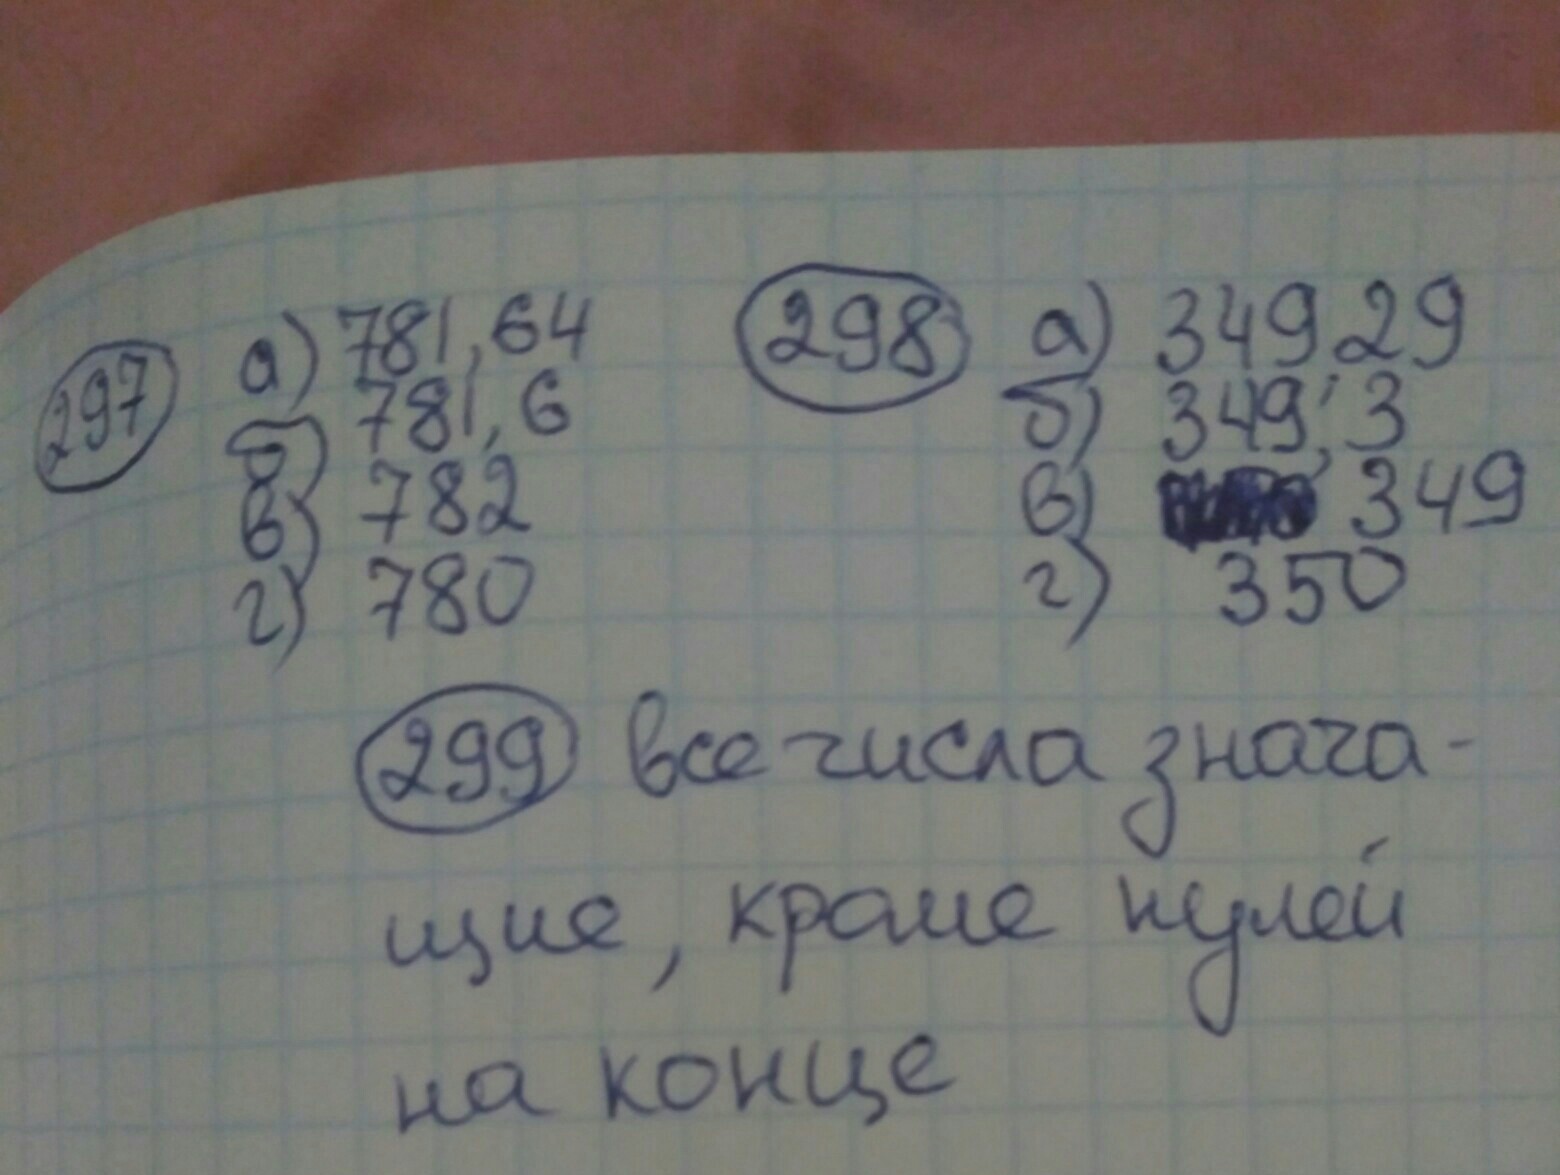 297 а) 781,64
б) 781,6
в) 782
г) 780
298 а) 349,29
б) 349,3
в) 349
г) 350
299 все числа знача-
щие, кроме нулей
на конце